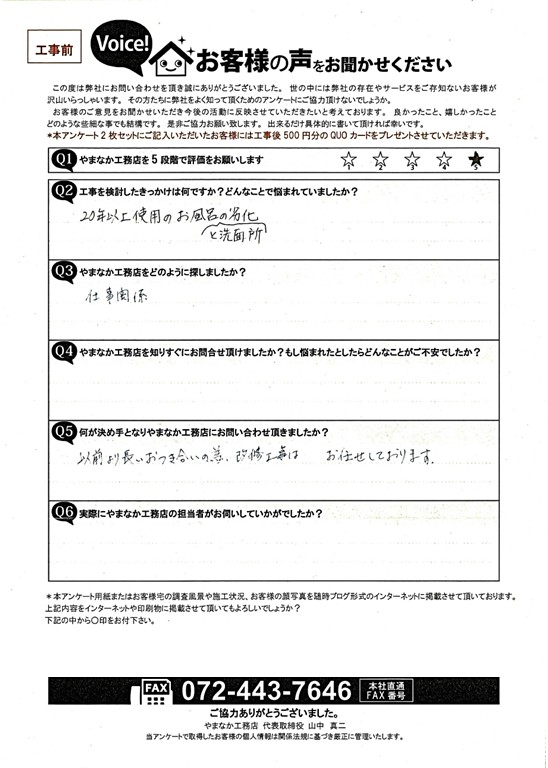 工事前
Voice!
お客様の声をお聞かせください
この度は弊社にお問い合わせを頂き誠にありがとうございました。 世の中には弊社の存在やサービスをご存知ないお客様が
沢山いらっしゃいます。 その方たちに弊社をよく知って頂くためのアンケートにご協力頂けないでしょうか。
お客様のご意見をお聞かせいただき今後の活動に反映させていただきたいと考えております。 良かったこと、嬉しかったこと
どのような些細な事でも結構です。 是非ご協力お願い致します。 出来るだけ具体的に書いて頂ければ幸いです。
*本アンケート2枚セットにご記入いただいたお客様には工事後500円分のQUOカードをプレゼントさせていただきます。
Q1 やまなか工務店を5段階で評価をお願いします
1 2 3 4 5
Q2 工事を検討したきっかけは何ですか?どんなことで悩まれていましたか?
20年以上使用のお風呂の劣化
と洗面所
Q3 やまなか工務店をどのように探しましたか?
仕事関係
Q4 やまなか工務店を知りすぐにお問合せ頂けましたか?もし悩まれたとしたらどんなことがご不安でしたか?
Q5 何が決め手となりやまなか工務店にお問い合わせ頂きましたか?
以前より長いおつき合いの為、改修工事は お任せしております。
Q6 実際にやまなか工務店の担当者がお伺いしていかがでしたか?
*本アンケート用紙またはお客様宅の調査風景や施工状況、お客様の顔写真を随時ブログ形式のインターネットに掲載させて頂いております。
上記内容をインターネットや印刷物に掲載させて頂いてもよろしいでしょうか?
下記の中から〇印をお付下さい。
FAX 072-443-7646 本社直通
FAX番号
ご協力ありがとうございました。
やまなか工務店 代表取締役 山中 真二
当アンケートで取得したお客様の個人情報は関係法規に基づき厳正に管理いたします。